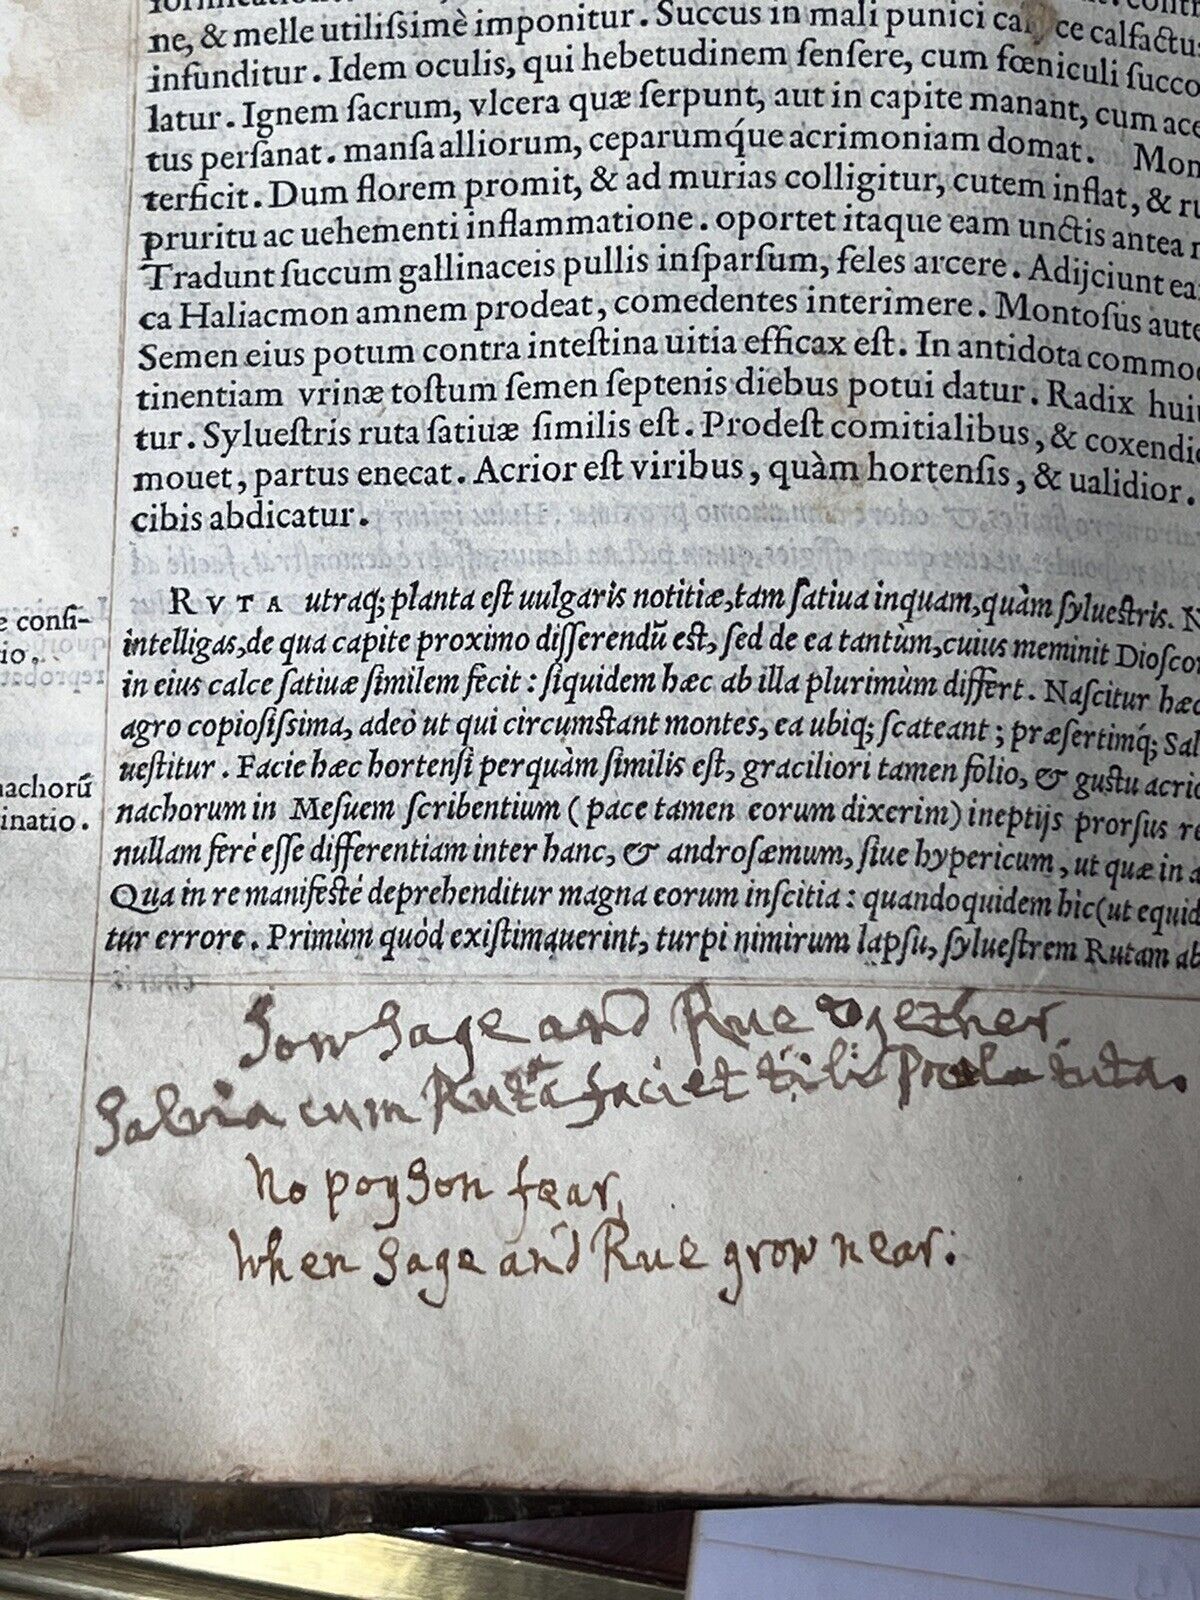 ne, & melle utiliſsimè imponitur. Succus in mali punici ce calfactu
infunditur. Idem oculis, qui hebetudinem ſenſere, cum fœniculi ſucco
latur. Ignem ſacrum, vlcera quæ ſerpunt, aut in capite manant, cum ace
tus perſanat. manſa alliorum, ceparumq́ue acrimoniam domat. Mon
terficit. Dum florem promit, & ad murias colligitur, cutem inflat, & ru
pruritu ac uehementi inflammatione. oportet itaque eam unctis antea
Tradunt ſuccum gallinaceis pullis inſparſum, feles arcere. Adijciunt ea
ca Haliacmon amnem prodeat, comedentes interimere. Montoſus aute
Semen eius potum contra inteſtina uitia efficax eſt. In antidota commo
tinentiam vrinæ toſtum ſemen ſeptenis diebus potui datur. Radix hui
tur. Sylueſtris ruta ſatiuæ ſimilis eſt. Prodeſt comitialibus, & coxendi
mouet, partus enecat. Acrior eſt viribus, quàm hortenſis, & ualidior.
cibis abdicatur.
RVTA utraq; planta eſt uulgaris notitiæ, tam ſatiua inquam, quàm ſylueſtris. N
e conſi-
intelligas, de qua capite proximo diſſerendū eſt, ſed de ea tantùm, cuius meminit Dioſco
io.
in eius calce ſatiuæ ſimilem fecit: ſiquidem hæc ab illa plurimùm differt. Naſcitur hæc
agro copioſiſsima, adeò ut qui circumſtant montes, ea ubiq; ſcateant; præſertimq́; Sal
ueſtitur. Facie hæc hortenſi perquàm ſimilis eſt, graciliori tamen folio, & guſtu acrio
nachorū
nachorum in Meſuem ſcribentium (pace tamen eorum dixerim) ineptijs prorſus re
inatio.
nullam ferè eſſe differentiam inter hanc, & androſæmum, ſiue hypericum, ut quæ in a
Qua in re manifeſtè deprehenditur magna eorum inſcitia: quandoquidem hic (ut equid
tur errore. Primùm quòd exiſtimauerint, turpi nimirum lapſu, ſylueſtrem Rutam ab
Sow Sage and Rue together.
Salvia cum Ruta faciet tibi Pocula tuta.
No poyson fear,
When Sage and Rue grow near: